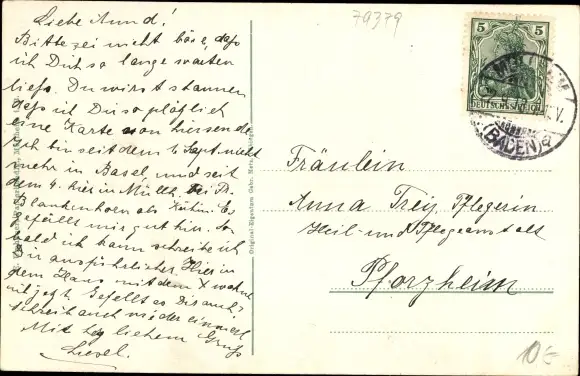 Liebe Anna!
Bitte sei nicht böse, dass
ich Dich so lange warten
liess. Du wirst staunen
dass ich Dir so plötzlich
eine Karte von hier sende
Ich bin seit dem 1. Sept. nicht
mehr in Basel, und seit
dem 4. hier in Müllh. bei Dr.
Blankenhorn als Köchin. Es
gefällt mir gut hier. So
bald ich kann schreibe ich
Dir ausführlicher. Hier in
dem Haus mit dem X wohne
ich jetzt. Gefällt es Dir auch?
Schreib auch wieder einmal
Mit herzlichem Gruss
Liesel.
79379
5 5
DEUTSCHES REICH
(BADEN)
Fräulein
Anna Trey, Pflegerin
Heil- und Pflegeanstalt
Pforzheim
10.-